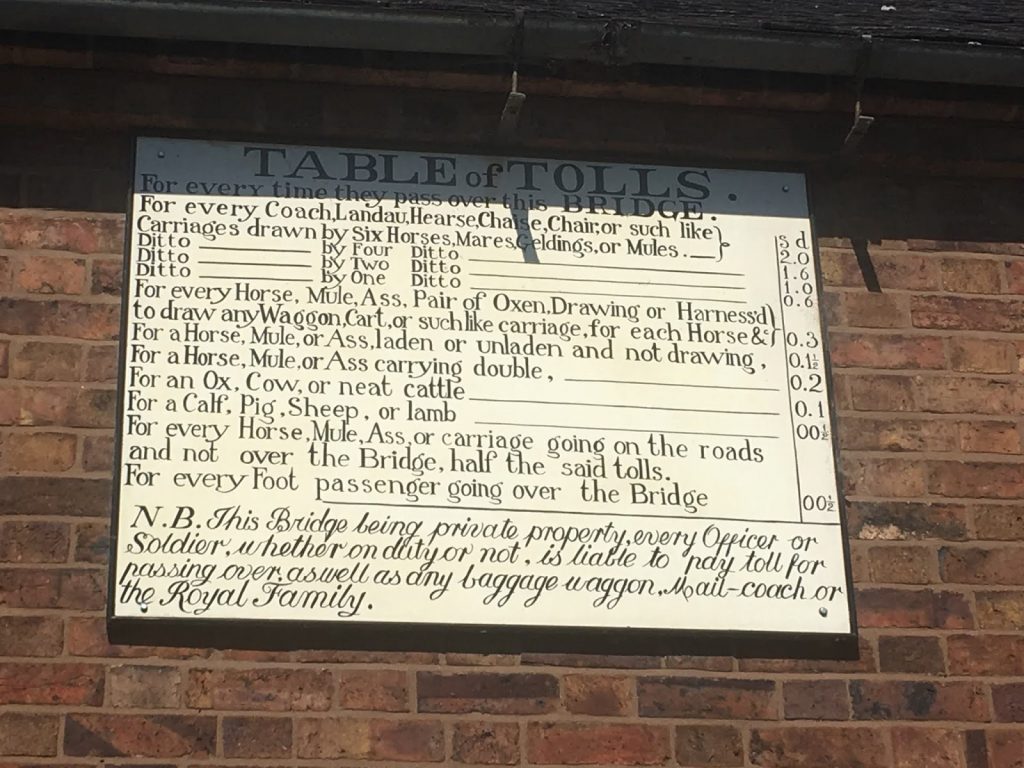 TABLE of TOLLS.
For every time they pass over this BRIDGE.
For every Coach, Landau, Hearse, Chaise, Chair, or such like
Carriages drawn by Six Horses, Mares, Geldings, or Mules. s d 2.0
Ditto by Four Ditto 1.6
Ditto by Two Ditto 1.0
Ditto by One Ditto 0.6
For every Horse, Mule, Ass, Pair of Oxen, Drawing or Harness'd
to draw any Waggon, Cart, or suchlike carriage, for each Horse &c 0.3
For a Horse, Mule, or Ass, laden or unladen and not drawing, 0.1½
For a Horse, Mule, or Ass carrying double, 0.2
For an Ox, Cow, or neat cattle 0.1
For a Calf, Pig, Sheep, or lamb 00½
For every Horse, Mule, Ass, or carriage going on the roads
and not over the Bridge, half the said tolls.
For every Foot passenger going over the Bridge 00½
N.B. This Bridge being private property, every Officer or
Soldier, whether on duty or not, is liable to pay toll for
passing over, as well as any baggage waggon, Mail-coach or
the Royal Family.